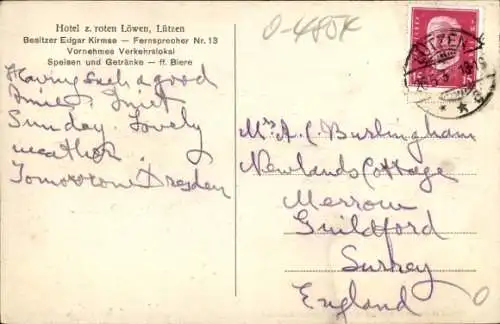 Hotel z. roten Löwen, Lützen
Besitzer Edgar Kirmse — Fernsprecher Nr. 13
Vornehmes Verkehrslokal
Speisen und Getränke — ff. Biere
0-480K
LÜTZEN
Having such a good
time. Quiet
Sunday. Lovely
weather.
Tomorrow Dresden
Mrs A. C. Burlingham
Newlands Cottage
Merrow
Guildford
Surrey
England